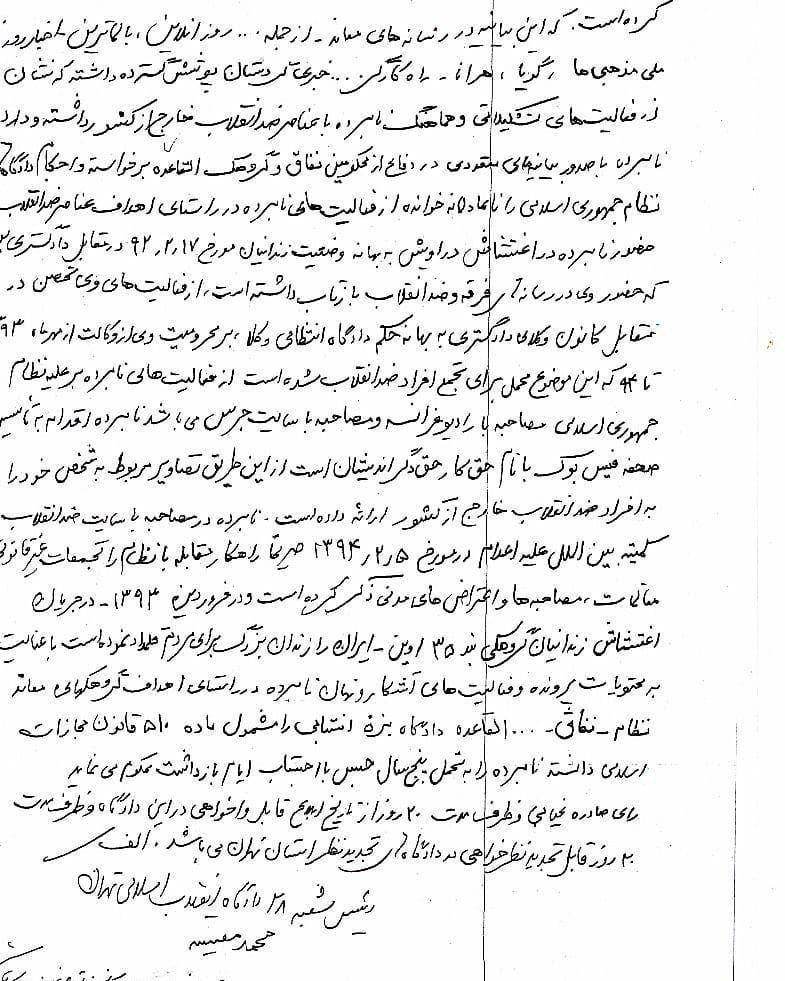 کرده است. که این بیانیه در رسانه های معاند - از جمله ... روز انلاین، بالاترین - اخبار روز
ملی مذهبی ها، گویا، هرانا - راه کارگر ... خبری کردستان پوشش گسترده داشته که نشان
از فعالیت های تشکیلاتی و هماهنگ نامبرده با عناصر ضد انقلاب خارج از کشور داشته و دارد
نامبرده با صدور بیانیه های متعددی در دفاع از محکومین نفاق و گروهک القاعده برخواسته و احکام دادگاه
نظام جمهوری اسلامی را ناعادلانه خوانده از فعالیت های نامبرده در راستای اهداف عناصر ضد انقلاب
حضور نامبرده در اغتشاش دراویش به بهانه وضعیت زندانیان مورخ ۹۲٫۲٫۱۷ در مقابل دادگستری
که حضور وی در رسانه های فرقه و ضد انقلاب بازتاب داشته است، از فعالیت های وی تحصن در
مقابل کانون وکلای دادگستری به بهانه حکم دادگاه انتظامی وکلا، بر محرومیت وی از وکالت از مهرماه ۹۳
تا ۹۴ که این موضوع محمل برای تجمع افراد ضد انقلاب شده است از فعالیت های نامبرده بر علیه نظام
جمهوری اسلامی مصاحبه با رادیو فرانسه و مصاحبه با سایت جرس می باشد نامبرده اقدام به تاسیس
صفحه فیس بوک با نام حق کار حق دگراندیشان است از این طریق تصاویر مربوط به شخص خود را
به افراد ضد انقلاب خارج از کشور ارائه داده است. نامبرده در مصاحبه با سایت ضد انقلاب
کمیته بین الملل علیه اعدام در مورخ ۱۳۹۴٫۲٫۵ صریحا راهکار مقابله با نظام را تجمعات غیر قانونی
مکاتبات، مصاحبه ها و اعتراض های مدنی ذکر کرده است و در فروردین ۱۳۹۳ - در جریان
اغتشاش زندانیان گروهکی بند ۳۵۰ اوین - ایران را زندان بزرگ برای مردم قلمداد نموده است با عنایت
به محتویات پرونده و فعالیت های آشکار و نهان نامبرده در راستای اهداف گروهکهای معاند
نظام - نفاق - ... القاعده دادگاه بزه انتسابی را مشمول ماده ۵۱۰ قانون مجازات
اسلامی داشته نامبرده را به تحمل پنج سال حبس با احتساب ایام بازداشت محکوم می نماید
رای صادره غیابی و ظرف مدت ۲۰ روز از تاریخ ابلاغ قابل واخواهی در این دادگاه و ظرف مدت
۲۰ روز قابل تجدید نظر خواهی در دادگاه های تجدید نظر استان تهران می باشد. الف
رئیس شعبه ۲۸ دادگاه انقلاب اسلامی تهران
محمد مقیسه